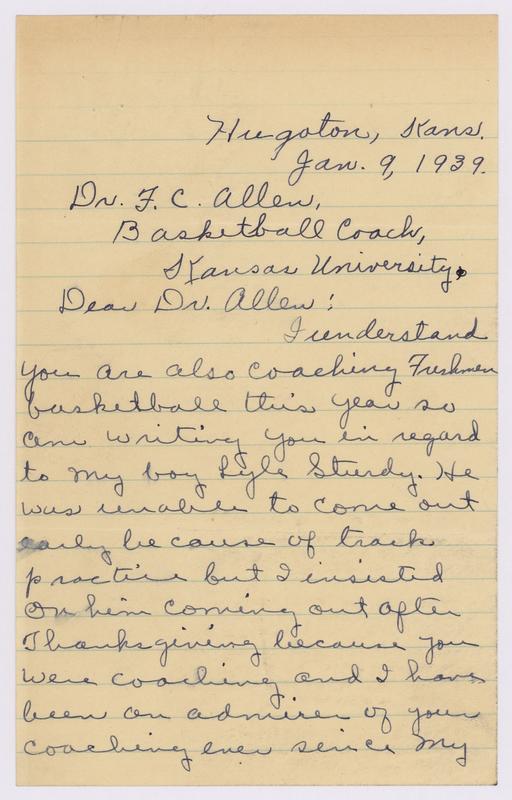 Hugoton, Kans.
Jan. 9, 1939.
Dr. F. C. Allen,
Basketball Coach,
Kansas University.
Dear Dr. Allen:
I understand
you are also coaching Freshmen
basketball this year so
am writing you in regard
to my boy Lyle Sturdy. He
was unable to come out
early because of track
practice but I insisted
on him coming out after
Thanksgiving because you
were coaching and I have
been an admirer of your
coaching ever since my